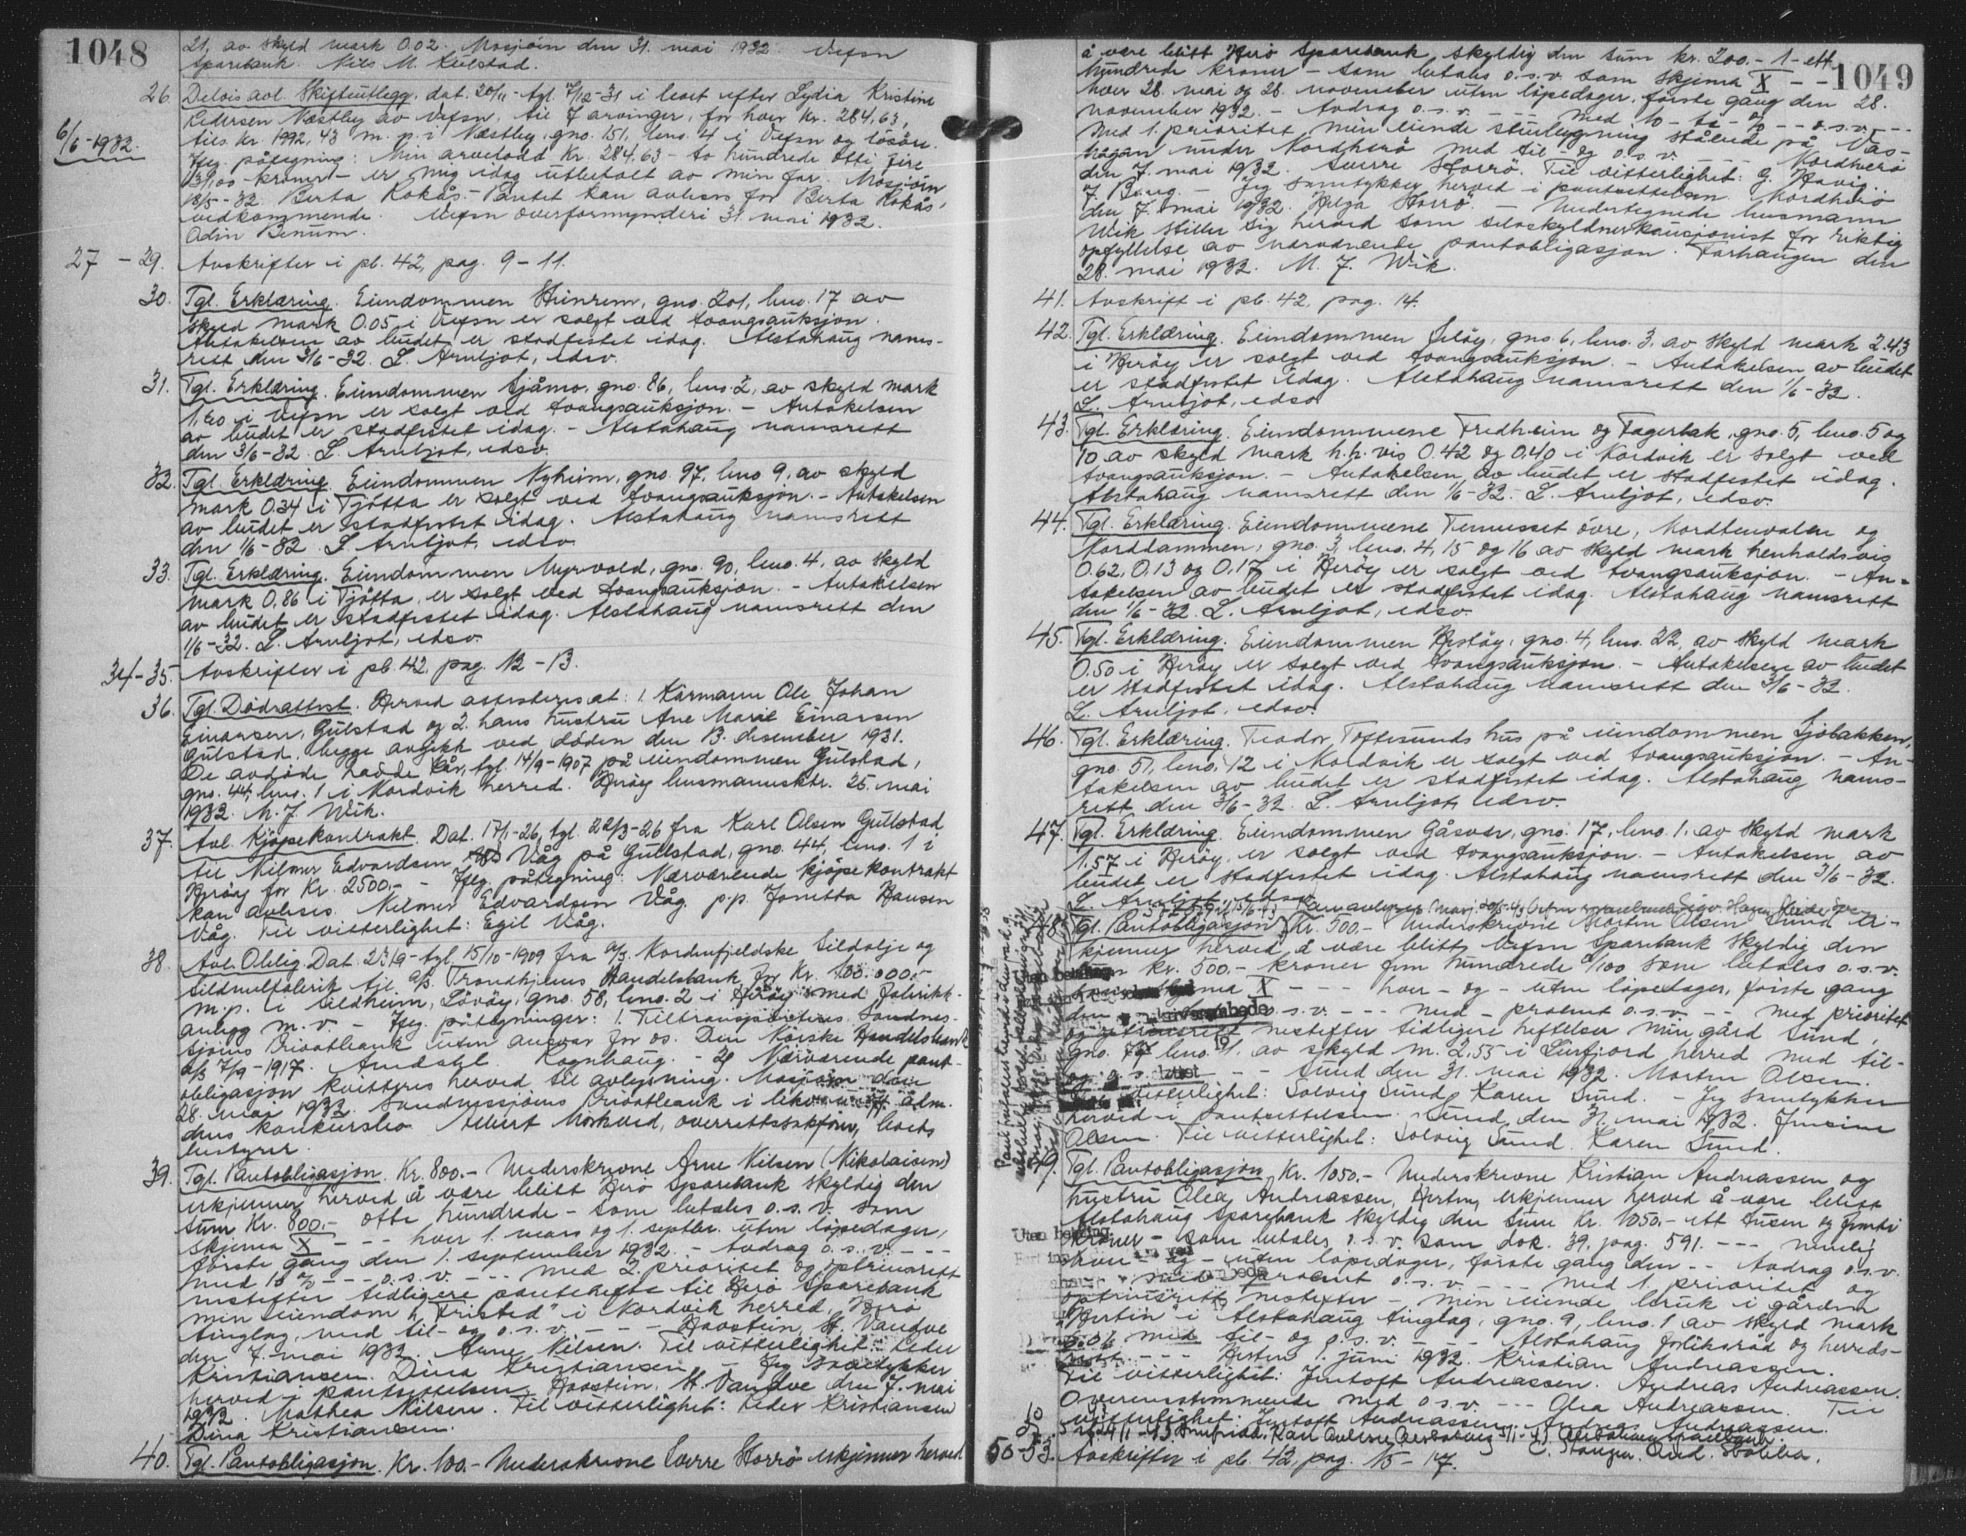 1048
21, av skyld mark 0.02. Mosjøin den 31. mai 1932. Vefsn
Sparebank. Nils M. Kulstad.
26. Delvis avl. Skifteutlegg, dat. 20/11- tgl. 7/12-31 i boet efter Lydia Kristine
Petersen Næstby av Vefsn, til 7 arvinger, for hver kr. 284,63,
6/6-1932.
tils. kr. 1992,43 m. p. i Næstby, gno. 151, bno. 4 i Vefsn og løsøre.
Jfg. påtegning: Min arvelodd kr. 284.63 - to hundrede otti fire
63/100 kroner - er mig idag utbetalt av min far. Mosjøin
18/5-32. Berta Kokås. - Pantet kan avlyses for Berta Kokås'
vedkommende. Vefsn overformynderi 31. mai 1932.
Odin Benum.
27 - 29. Avskrifter i pb. 42, pag. 9-11.
30. Tgl. Erklæring. Eiendommen Steinrem, gno. 201, bno. 17 av
skyld mark 0.05 i Vefsn er solgt ved tvangsauksjon.
Antakelsen av budet er stadfestet idag. Alstahaug nams-
rett den 3/6-32. L. Arntjot, edsv.
31. Tgl. Erklæring. Eiendommen Sjåmo, gno. 86, bno. 2, av skyld mark
1,20 i Vefsn er solgt ved tvangsauksjon. - Antakelsen
av budet er stadfestet idag. - Alstahaug namsrett
den 3/6-32. L. Arntjot, edsv.
32. Tgl. Erklæring. Eiendommen Nyheim, gno. 97, bno 9, av skyld
mark 0.34 i Tjøtta er solgt ved tvangsauksjon. - Antakelsen
av budet er stadfestet idag. Alstahaug namsrett
den 1/6-32. L. Arntjot, edsv.
33. Tgl. Erklæring. Eiendommen Myrvold, gno. 90, bno. 4, av skyld
mark 0,86 i Tjøtta, er solgt ved tvangsauksjon. - Antakelsen
av budet er stadfestet idag. Alstahaug namsrett den
1/6-32. L. Arntjot, edsv.
34-35. Avskrifter i pb. 42. pag. 12-13.
36. Tgl. Dødsattest. Herved attesteres at: 1. Kårmann Ole Johan
Einarsen, Gulstad og 2. hans hustru Ane Marie Einarsen
Gulstad, begge avgikk ved døden den 13. desember 1931.
De avdøde hadde kår, tgl. 14/9-1907 på eiendommen Gulstad,
gno. 44, bno. 1 i Nordvik herred. Herøy lensmannsktr. 25. mai
1932. M. J. Wik.
37. Avl. Kjøpekontrakt. Dat. 17/1-26, tgl. 22/3-26 fra Karl Olsen Gullstad
til Nilmer Edvardsen Våg på Gullstad, gno. 44, bno. 1 i
Herøy for kr. 2500,- - Jfg. påtegning: Nærværende kjøpekontrakt
kan avlyses. Nilmer Edvardsen Våg. p.p. Jonetta Hansen
Våg. Til vitterlighet: Egil Våg.
38. Avl. Oblig. Dat. 23/9- tgl. 15/10-1909 fra A/S Nordenfjeldske Sildolje og
Sildmelfabrik til A/S Trondhjems Handelsbank for kr. 100.000,-
m.p. i Sildheim, Løvøy, gno. 58, bno. 2 i Herøy med fabrikk-
anlegg m. v. - Jfg. påtegninger: 1. Tiltransporteres Sandnes-
sjøens Privatbank uten ansvar for os. Den Norske Handelsbank
A/S 7/9-1917. Amdahl. Rognhaug. - 2. Nærværende pant-
obligasjon kvitteres herved til avlysning. Mosjøen den
28. mai 1932. Sandnessjøens Privatbank i likv. under adm.
dens konkursbo. Albert Morkved, overrettssakfører, boets
bestyrer.
39. Tgl. Pantobligasjon. Kr. 800.- Underskrevne Arne Nilsen (Nikolaisen)
erkjenner herved å være blitt Herø Sparebank skyldig den
sum kr. 800.- otte hundrede - som betales o. s. v. som
skjema X - - - hver 1. mars og 1. septbr. uten løpedager,
første gang den 1. september 1932. - Avdrag o. s. v. - - -
med 10 % - - - o.s.v. - - - med 2. prioritet og oprinsrett
nestefter tidligere pantehefte til Herø Sparebank
min eiendom "Fristed" i Nordvik herred, Herø
tinglag, med til- og o. s. v. - - - Havstein, St. Vandve
den 7. mai 1932. Arne Nilsen. Til vitterlighet: Peder
Kristiansen. Dina Kristiansen. - Jeg samtykker
herved i pantsettelsen. Havstein, St. Vandve den 7. mai
1932. Mathea Nilsen. Til vitterlighet: Peder Kristiansen
Dina Kristiansen.
40. Tgl. Pantobligasjon. Kr. 100.- Underskrevne Sverre Storrø erkjenner herved
1049
å være blitt Herø Sparebank skyldig den sum kr. 200.- 1 - ett
hundrede kroner - som betales o.s.v. som skjema X - -
hver 28. mai og 28. november uten løpedager, første gang den 28.
november 1932. - Avdrag o. s. v. - - - med 10 - ti - % - - o.s.v. - - -
med 1. prioritet min eiende stuebygning stående på Vås-
hagan under Nordherø med til- og o.s.v. - - - Nordherø
den 7. mai 1932. Sverre Storrø. Til vitterlighet: G. Havig.
J. Berg. - Jeg samtykker herved i pantsettelsen. Nordherø
den 7. mai 1932. Helga Storrø - Undertegnede lensmann
Wik stiller sig herved som selvskyldnerkausjonist for riktig
opfyllelse av nærværende pantobligasjon. Farhaugen den
28. mai 1932. M. J. Wik.
41. Avskrift i pb. 42, pag. 14.
42. Tgl. Erklæring. Eiendommen Indøy, gno. 6, bno. 3, av skyld mark 2.43
i Herøy er solgt ved tvangsauksjon. - Antakelsen av budet
er stadfestet idag. Alstahaug namsrett den 1/6-32.
L. Arntjot, edsv.
43. Tgl. Erklæring. Eiendommene Fredheim og Fagerbak, gno. 5, bno. 5 og
10 av skyld mark h.h.vis 0.42 og 0,40 i Nordvik er solgt ved
tvangsauksjon. - Antakelsen av budet er stadfestet idag.
Alstahaug namsrett den 1/6-32. L. Arntjot, edsv.
44. Tgl. Erklæring. Eiendommene Tenneset øvre, Nordtenvalen og
Norddammen, gno. 3, bno. 4, 15 og 16 av skyld mark henholdsvis
0.62, 0.13 og 0,17 i Herøy er solgt ved tvangsauksjon. - An-
takelsen av budet er stadfestet idag. Alstahaug namsrett
den 1/6-32. L. Arntjot, edsv.
45. Tgl. Erklæring. Eiendommen Hestøy, gno. 4, bno. 22, av skyld mark
0.50 i Herøy er solgt ved tvangsauksjon. - Antakelsen av budet
er stadfestet idag. Alstahaug namsrett den 3/6-32.
L. Arntjot, edsv.
46. Tgl. Erklæring. Teodor Toftesunds hus på eiendommen Sjøbakken,
gno. 51, bno. 12 i Nordvik er solgt ved tvangsauksjon. - An-
takelsen av budet er stadfestet idag. Alstahaug nams-
rett den 3/6-32. L. Arntjot, edsv.
47. Tgl. Erklæring. Eiendommen Gåsvær, gno. 17, bno. 1, av skyld mark
1.57 i Herøy, er solgt ved tvangsauksjon. - Antakelsen av
budet er stadfestet idag. Alstahaug namsrett den 3/6-32.
L. Arntjot, edsv.
48. Tgl. Pantobligasjon. Kr. 500.- Underskrevne Morten Olsen Sund er-
kjenner herved å være blitt Vefsn Sparebank skyldig den
sum kr. 500.- kroner fem hundrede /100 som betales o.s.v.
skjema X - - - hver - og - uten løpedager, første gang
den o. s. v. - - - med - procent o.s.v. - - med prioritet
og oprinsrett nestefter tidligere heftelser min gård Sund,
gno. bno. 1. av skyld m. 2.55 i Leirfjord herred med til-
og o.s.v. - - Sund den 31. mai 1932. Morten Olsen.
Til vitterlighet: Solveig Sund. Karen Sund. - Jeg samtykker
herved i pantsettelsen. Sund den 31. mai 1932. Jensine
Olsen. Til vitterlighet: Solveig Sund. Karen Sund.
49. Tgl. Pantobligasjon. Kr. 1050.- Underskrevne Kristian Andreassen og
hustru Olea Andreassen, Hestun, erkjenner herved å være blitt
Alstahaug Sparebank skyldig den sum kr. 1050.- ett tusen og femti
Uten betaling
kroner - som betales o.s.v. som dok. 39, pag. 591. - - - nemlig
hver - og - uten løpedager, første gang den - - Avdrag o.s.v.
- med procent o.s.v. - - - med 1. prioritet og
oprinsrett nestefter - min eiende bruk i gården
"Hestun" i Alstahaug tinglag, gno. 9, bno. 1 av skyld mark
med til- og o. s. v. - - - Alstahaug forliksråd og herreds-
- - - Hestun 1. juni 1932. Kristian Andreassen.
Til vitterlighet: Jentoft Andreassen. Andreas Andreassen.
Overensstemmende med o s.v. - - - Olea Andreassen. Til
vitterlighet: Jentoft Andreassen. Andreas Andreassen.
50-53. Avskrifter i pb. 42, pag. 15-17.